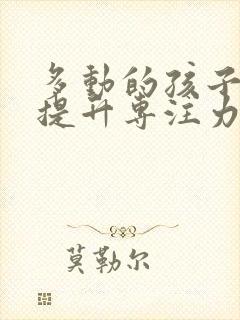 多動的孩子
提升專注力
莫勒尔